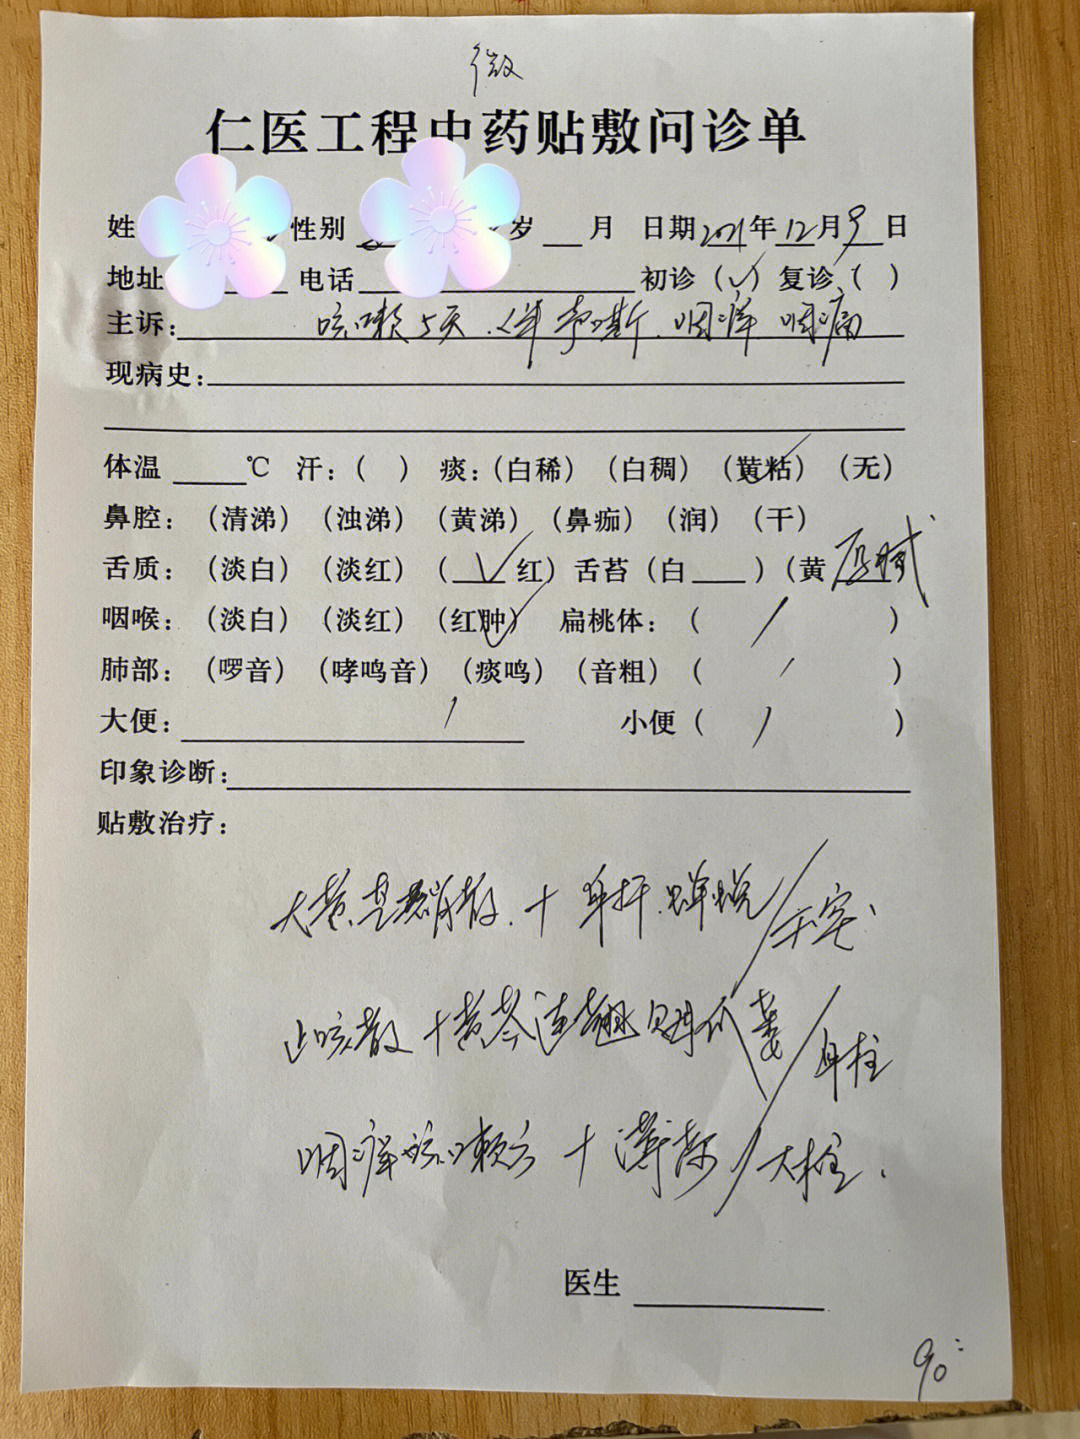 微
仁医工程中药贴敷问诊单
姓 性别 岁 月 日期 2021年 12月 9日
地址 电话 初诊（✓）复诊（ ）
主诉： 咳嗽5天.伴声嘶.咽痒 咽痛
现病史：
体温 ℃ 汗：（ ） 痰：（白稀）（白稠）（黄粘）（无）
鼻腔：（清涕）（浊涕）（黄涕）（鼻痂）（润）（干）
舌质：（淡白）（淡红）（ ✓ 红）舌苔（白 ）（黄 厚腻
咽喉：（淡白）（淡红）（红肿） 扁桃体：（ / ）
肺部：（啰音）（哮鸣音）（痰鸣）（音粗）（ / ）
大便： / 小便（ / ）
印象诊断：
贴敷治疗：
大黄 散.+ 射干.蝉蜕/天突.
止咳散+黄芩连翘 贝 瓜蒌/身柱
咽痒咳嗽方+薄荷/大柱.
医生
90